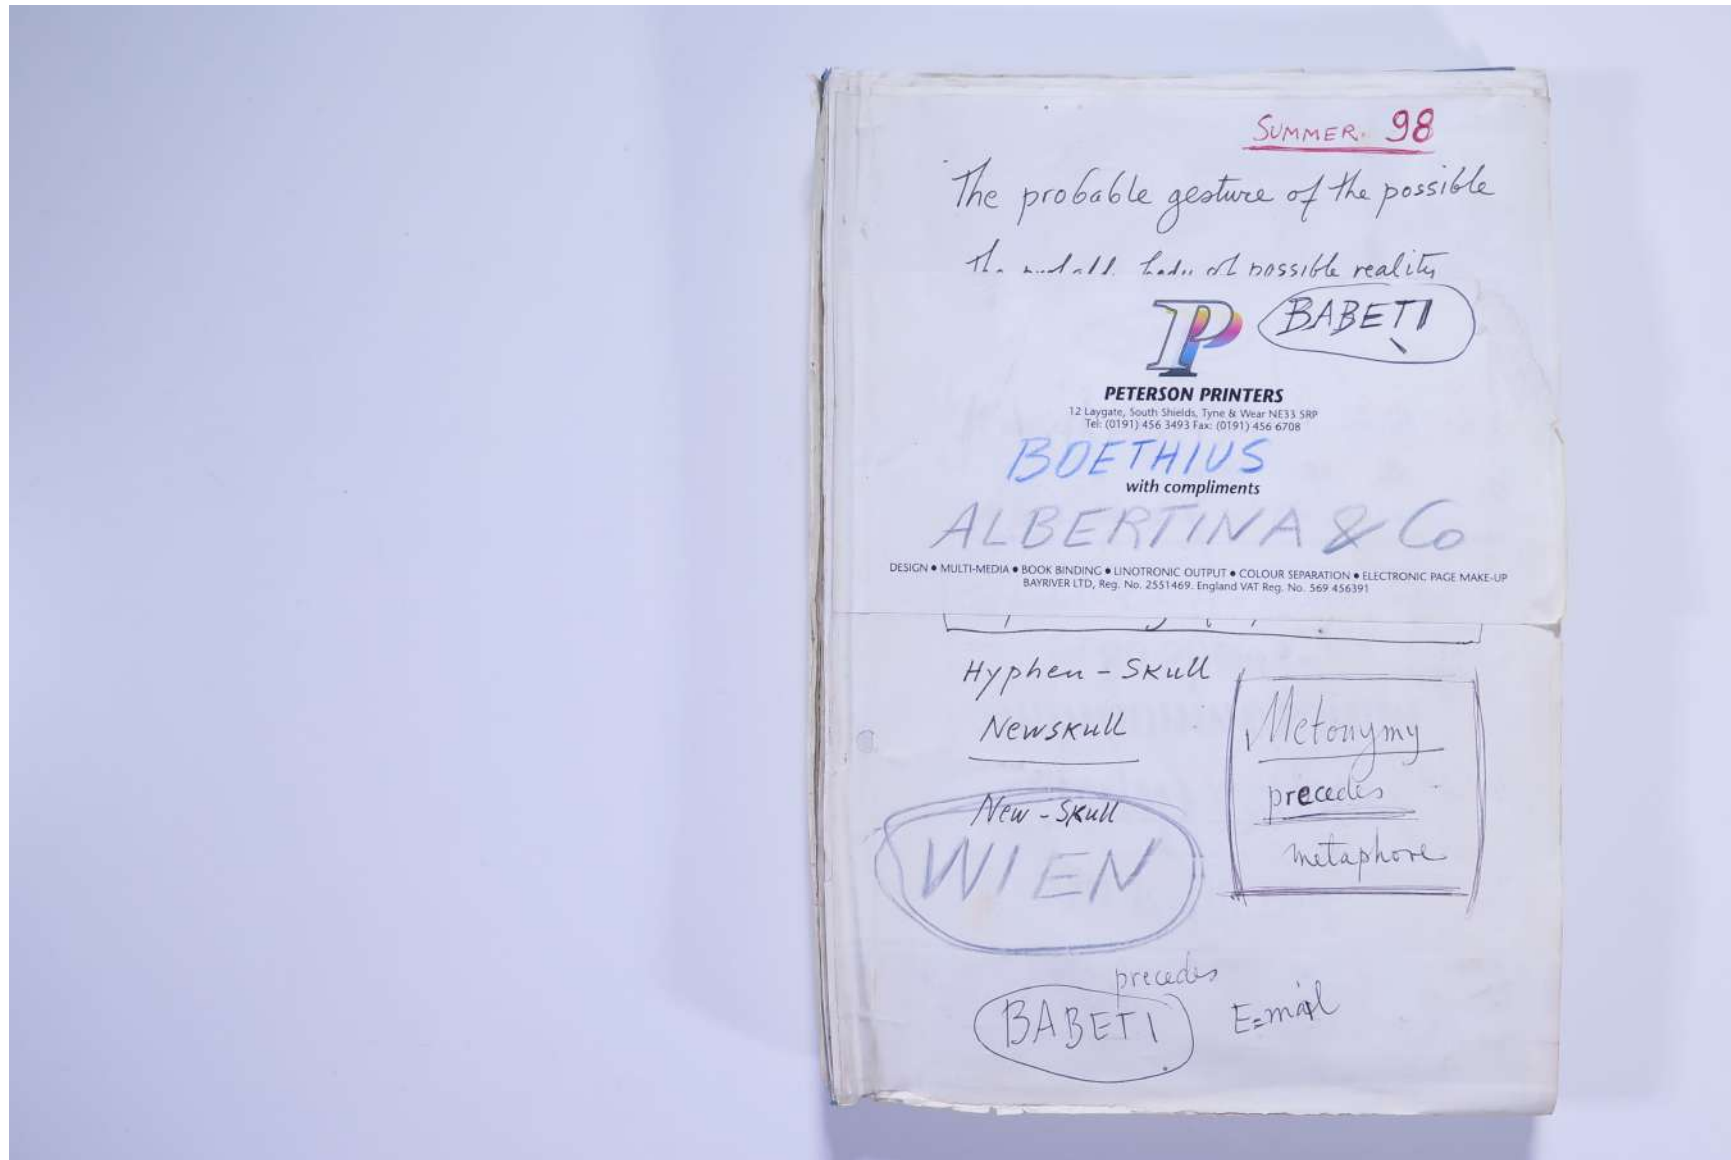 SUMMER. 98
The probable gesture of the possible
of possible reality
P
BABETI
PETERSON PRINTERS
12 Laygate, South Shields, Tyne & Wear NE33 5RP
Tel: (0191) 456 3493 Fax: (0191) 456 6708
BOETHIUS
with compliments
ALBERTINA & Co
DESIGN ● MULTI-MEDIA ● BOOK BINDING ● LINOTRONIC OUTPUT ● COLOUR SEPARATION ● ELECTRONIC PAGE MAKE-UP
BAYRIVER LTD, Reg. No. 2551469. England VAT Reg. No. 569 456391
Hyphen - Skull
Newskull
New - Skull
WIEN
Metonymy
precedes
metaphore
precedes
BABETI
E=mail